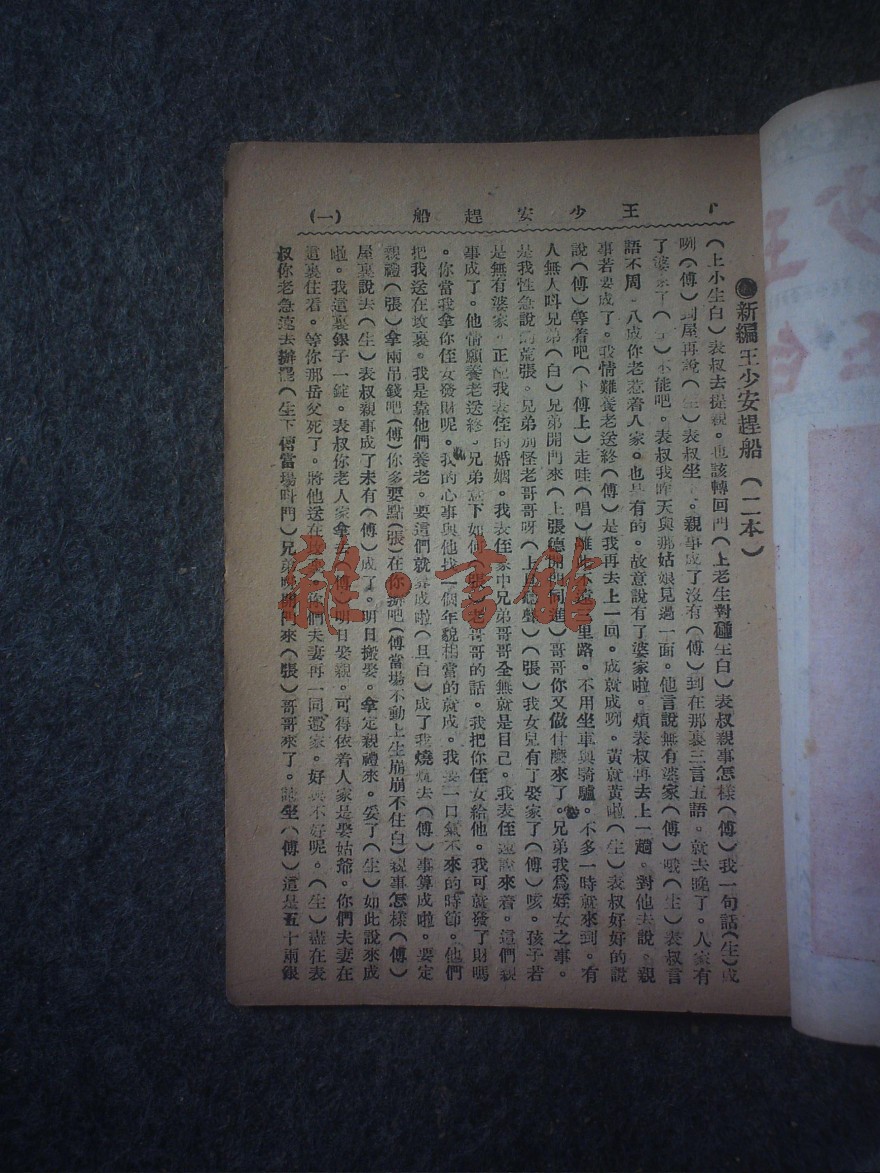 王少安趕船 (一)
新編王少安趕船 (二本)
(上小生白)表叔去提親。也該轉回門(上老生對碰生白)表叔親事怎樣(傅)我一句話(生)成
咧(傅)到屋再說(生)表叔坐。親事成了沒有(傅)到在那裏三言五語。就去晚了。人家有
了婆家了(生)不能吧。表叔我昨天與那姑娘見過一面。他言說無有婆家(傅)哦(生)表叔言
語不周。八成你老惹着人家。也是有的。故意說有了婆家啦。煩表叔再去上一趟。對他去說。親
事若要成了。我情難養老送終(傅)是我再去上一回。成就成咧。黃就黃啦(生)表叔好好的說
說(傅)等着吧(下傅上)走哇(唱)離此不遠三里路。不用坐車與騎驢。不多一時就來到。有
人無人呌兄弟(白)兄弟開門來(上張德開同進)哥哥你又做什麼來了。兄弟我爲姪女之事。
是我性急說荒張。兄弟別怪老哥哥呀(張)我女兒有了婆家了(傅)咳。孩子若
是無有婆家。正配我表侄的婚姻。我表侄家中兄弟哥哥全無就是自己。我表侄還說來着。這們親
事成了。他情願養老送終。兄弟意下如何(張)老哥哥的話。我把你侄女給他。我可就發了財嗎
。你當我拿你侄女發財呢。我的心事與他找一個年貌相當的就成。我要一口氣不來的時節。他們
把我送在坟裏。我是靠他們養老。要這們就算成啦(旦白)成了我燒炕去(傅)事算成啦。要定
親禮(張)拿兩吊錢吧(傅)你多要點(張)在你辦吧(傅當場不動上生崩崩不住白)親事怎樣(傅)
屋裏說去(生)表叔親事成了未有(傅)成了。明日搬娶。拿定親禮來。妥了(生)如此說來成
啦。我這裏銀子一錠。表叔你老人家拿去(傅)明日娶親。可得依着人家是娶姑爺。你們夫妻在
這裏住着。等你那岳父死了。將他送在坟裏。你們夫妻再一同還家。好與不好呢。(生)盡在表
叔你老急流去辦罷(生下傅當場呌門)兄弟開門來(張)哥哥來了。請坐(傅)這是五十兩銀
雜·書館